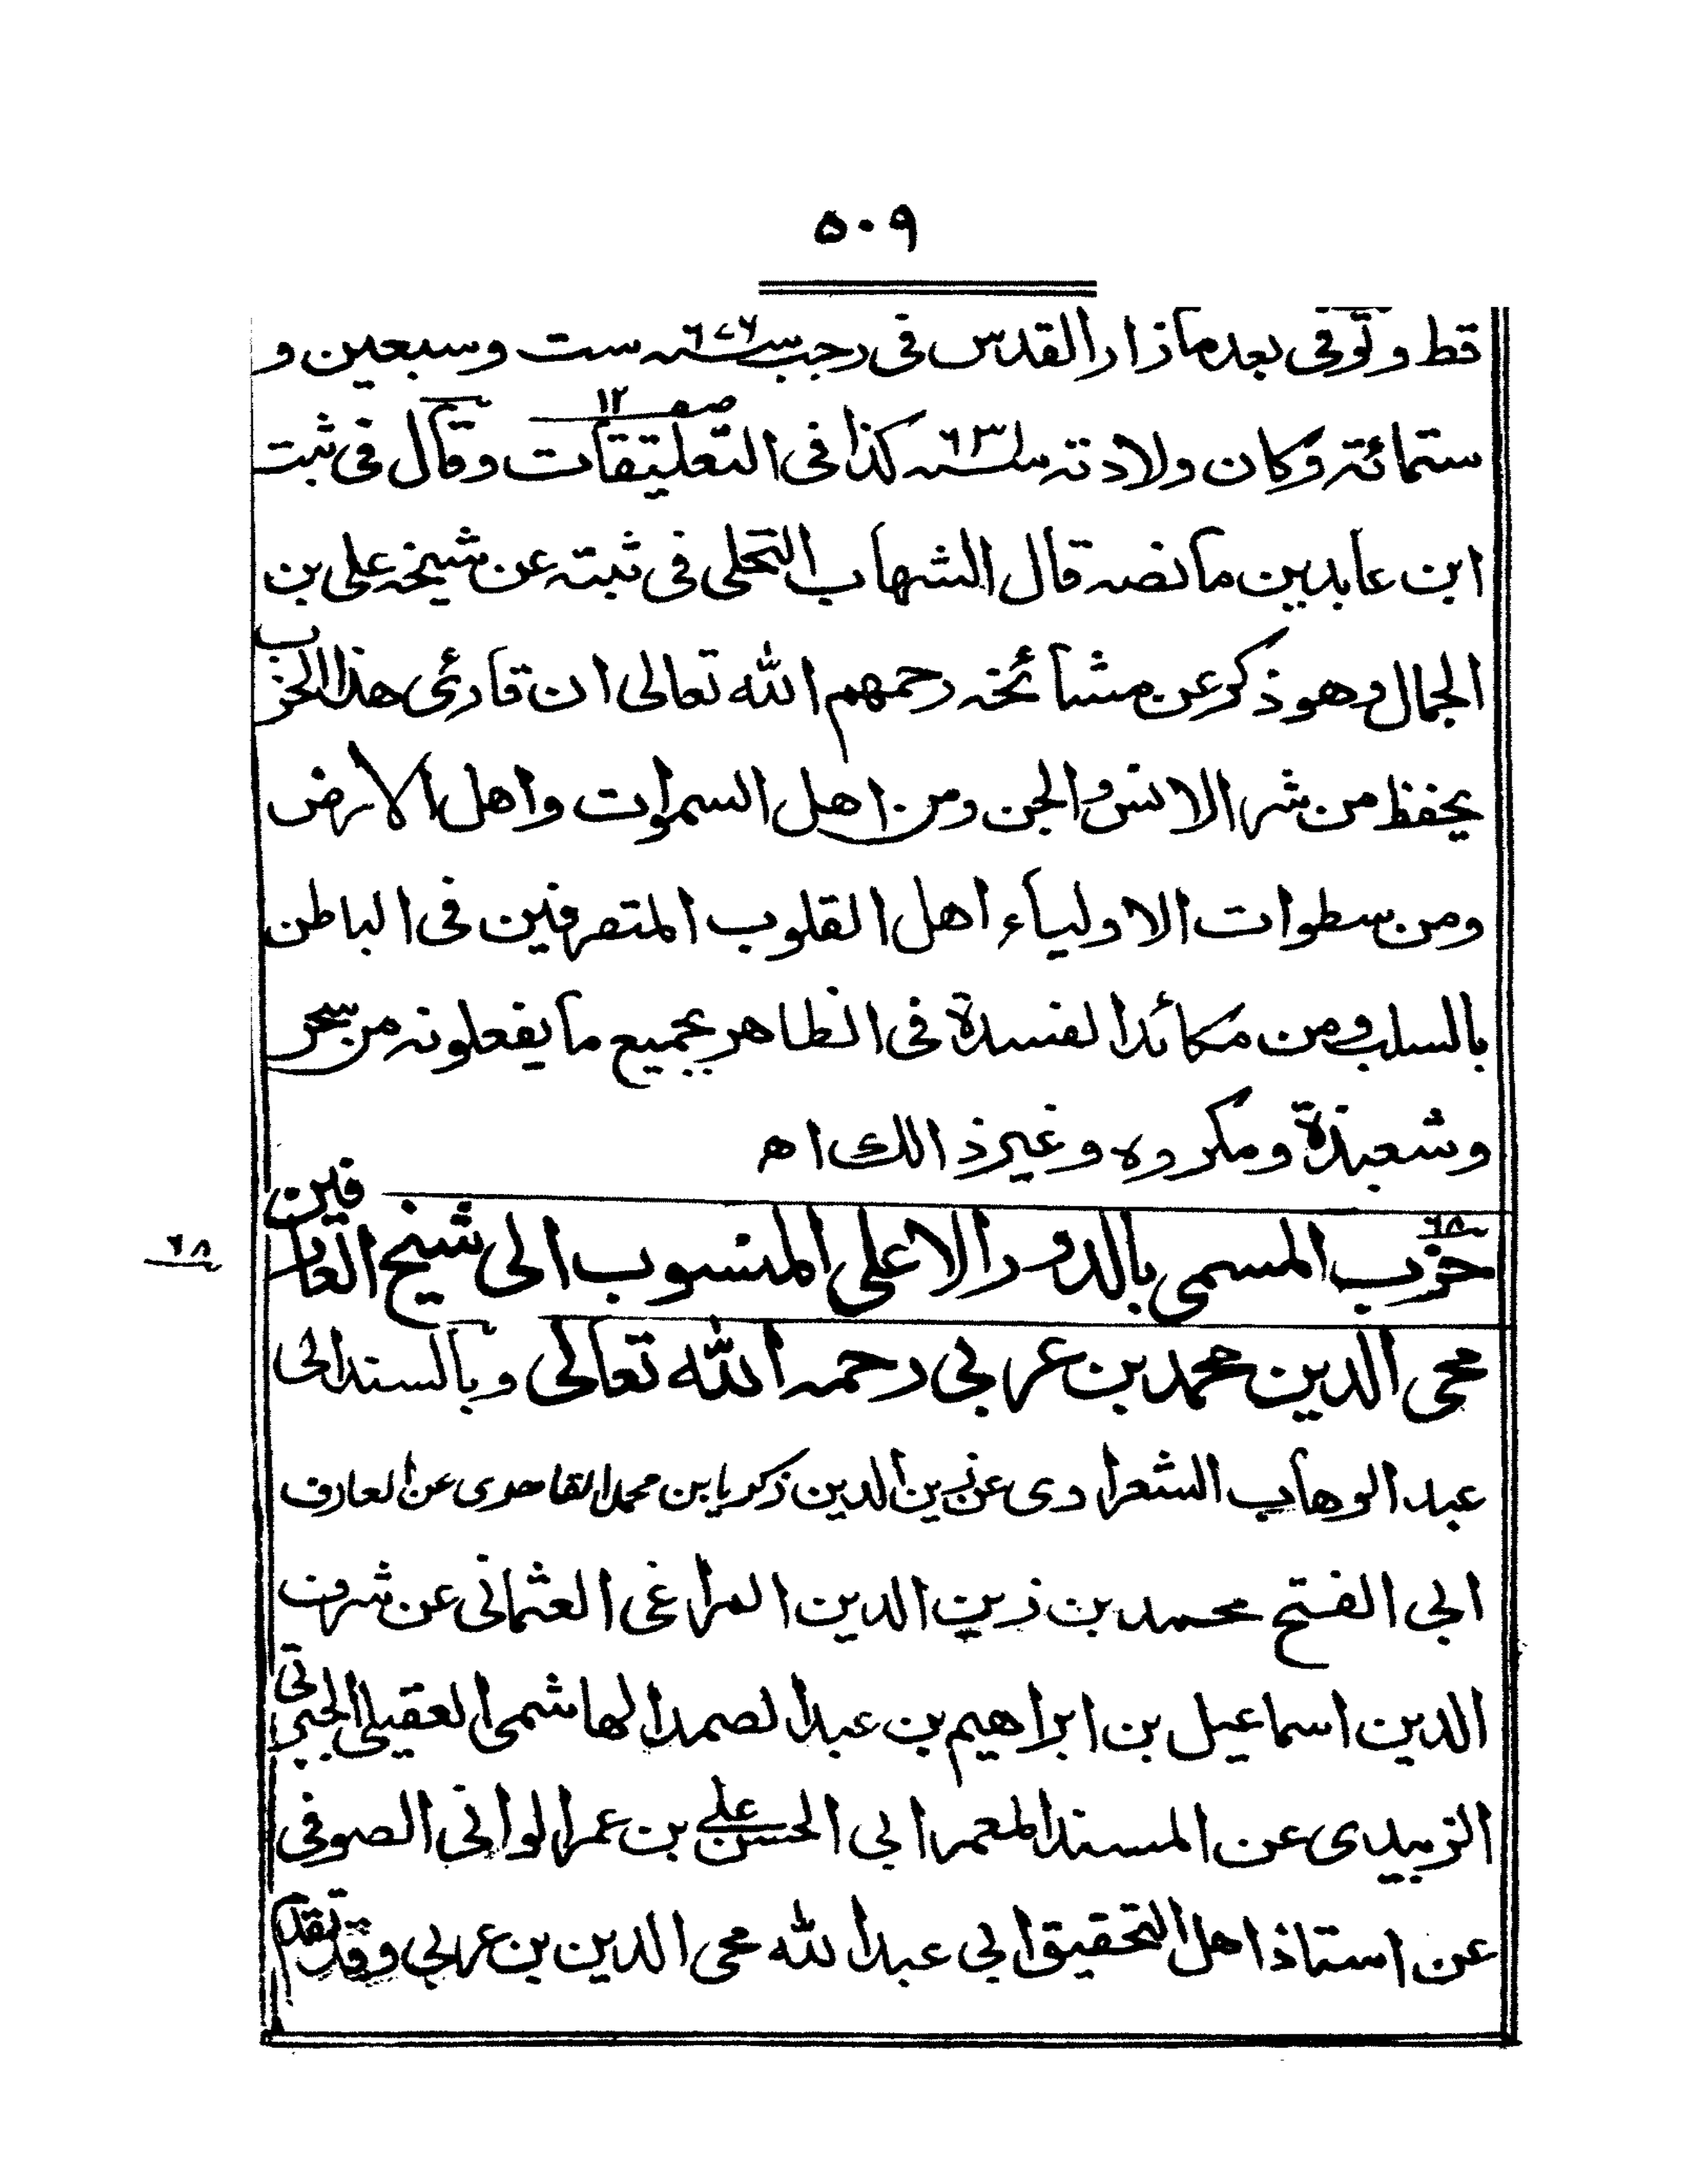 ٥٠٩
قط وتوفى بعد ما زار القدس فى رجب سنه ٦٧٦ ست وسبعين و
ستمائة وكان ولادته سنه ٦٣١ كذا فى التعليقات صه ١٢ وقال فى ثبت
ابن عابدين ما نصه قال الشهاب النحلى فى ثبته عن شيخه على بن
الجمال وهو ذكر عن مشائخه رحمهم الله تعالى ان قارئ هذا الحزب
يحفظ من شر الانس والجن ومن اهل السموات واهل الارض
ومن سطوات الاولياء اهل القلوب المتصرفين فى الباطن
بالسلب ومن مكائد الفسدة فى الظاهر بجميع ما يفعلونه من سحر
وشعبذة ومكروه وغير ذالك اه
٦٨
حزب المسمى بالدور الاعلى المنسوب الى شيخ العارفين
٦٨
محى الدين محمد بن عربى رحمه الله تعالى وبالسند الى
عبد الوهاب الشعراوى عن زين الدين زكريا بن محمد القاهرى عن العارف
ابى الفتح محمد بن زين الدين المراغى العثمانى عن شرف
الدين اسماعيل بن ابراهيم بن عبد الصمد الهاشمى العقيلى الجبرتى
الزبيدى عن المسند المعمر ابى الحسن على بن عمر الوانى الصوفى
عن استاذ اهل التحقيق ابى عبد الله محى الدين بن عربى وقد تقدم